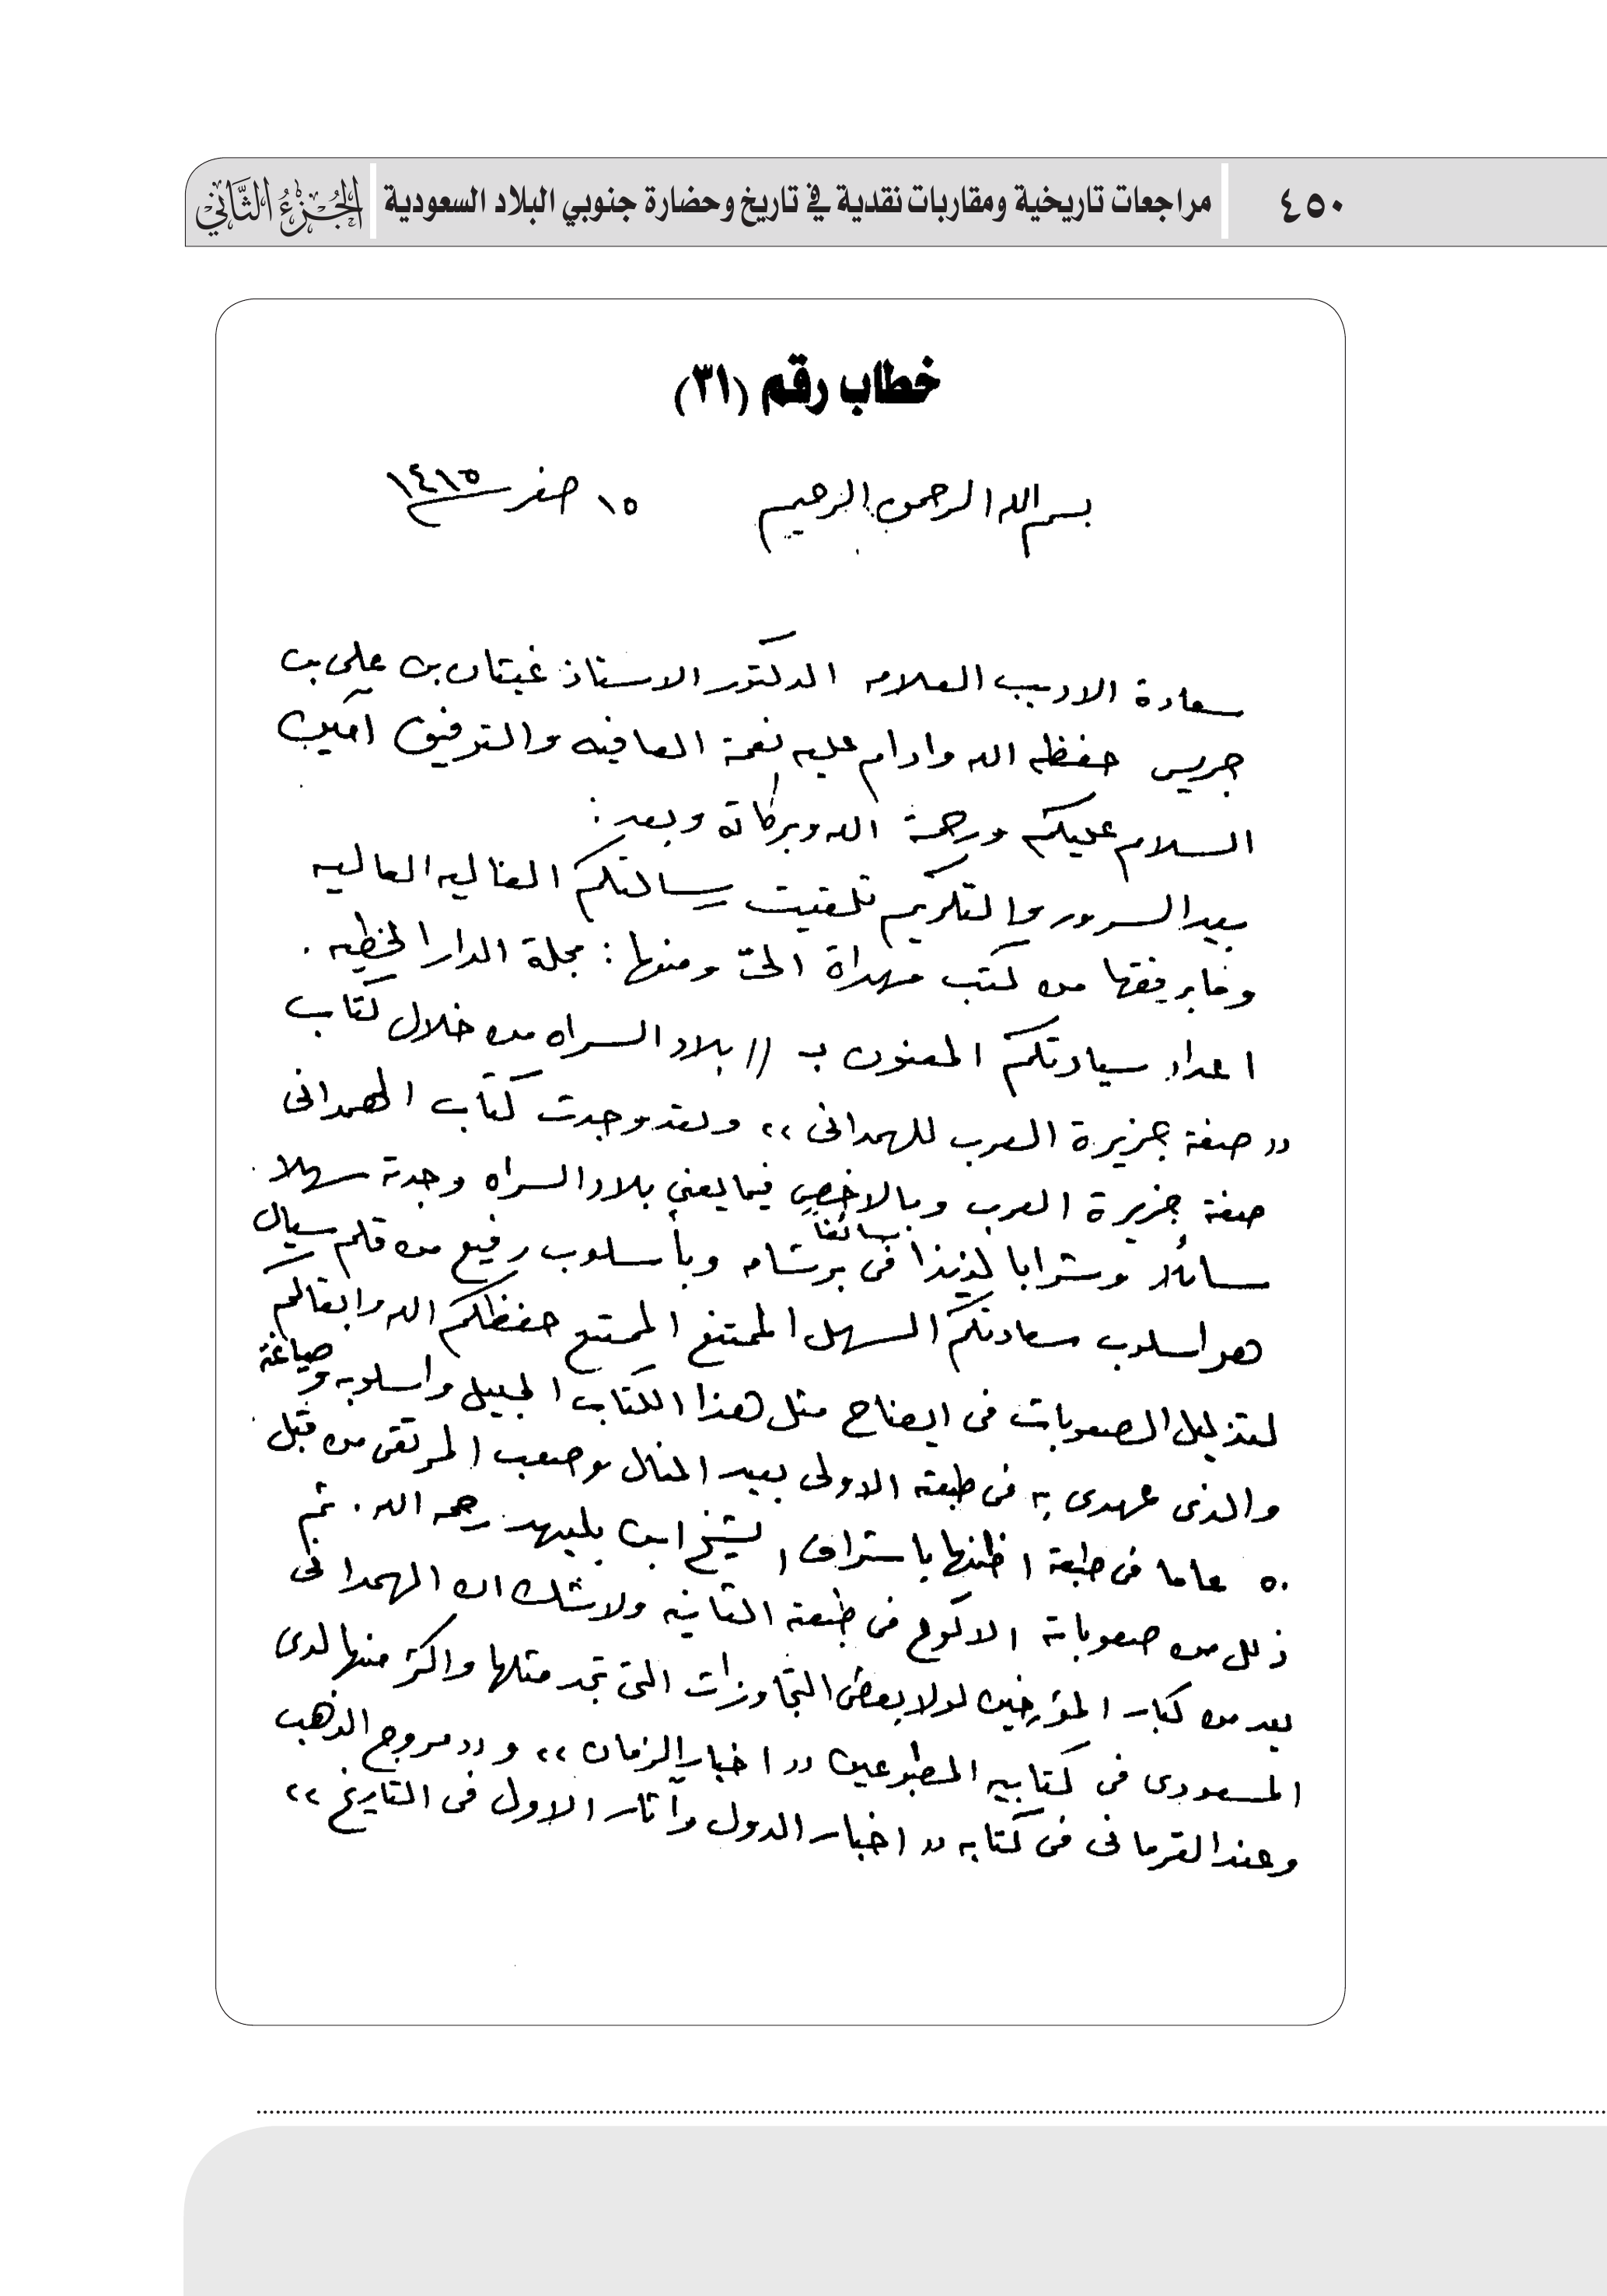 ٤٥٠
مراجعات تاريخية ومقاربات نقدية في تاريخ وحضارة جنوبي البلاد السعودية
الجزء الثاني
خطاب رقم (٣١)
بسم الله الرحمن الرحيم ١٥ صفر ١٤١٥
سعادة الاديب العلامه الدكتور الاستاذ غيثان بن علي بن
جريس حفظه الله وادام عليه نعمة العافيه والتوفيق آمين
السلام عليكم ورحمة الله وبركاتة وبعد :
بيد السرور والتكريم تلقيت رسالتكم الغاليه العاليه
ومابرفقها من كتب مهداة اليّ ومنها : مجلة الدار
اعداد سيادتكم المعنون بـ // بلاد السراه من خلال كتاب
«صفة جزيرة العرب للهمدانى» ولقد وجدت كتاب الهمدانى
صفة جزيرة العرب وبالاخص فيما يعني بلاد السراه وجدته سهلا
سائلا وشرابا لذيذا سائغا فى وبأسلوب رفيع من قلم سيال
هو اسلوب سعادتكم السهل الممتنع الممتع حفظكم الله وابقاكم
لتذليل الصعوبات فى ايضاح مثل هذا الكتاب الجليل واسلوبه وصياغة
والذى عهدى به فى طبعته الاولى بعيد المنال وصعب المرتقى من قبل
٥٠ عاما فى طبعة اظنها باشراف الشيخ ابن بليهد رحمه الله . ثم
ذلل من صعوباتة الاكوع فى طبعته الثانيه ولاشك ان الهمدانى
يعد من كبار المؤرخين لولا بعض التجاوزات التى تجد مثلها واكثر منها لدى
المسعودى فى كتابيه المطبوعين «اخبار الزمان» و «مروج الذهب
وعند القرمانى فى كتابه «اخبار الدول وآثار الاول فى التاريخ»